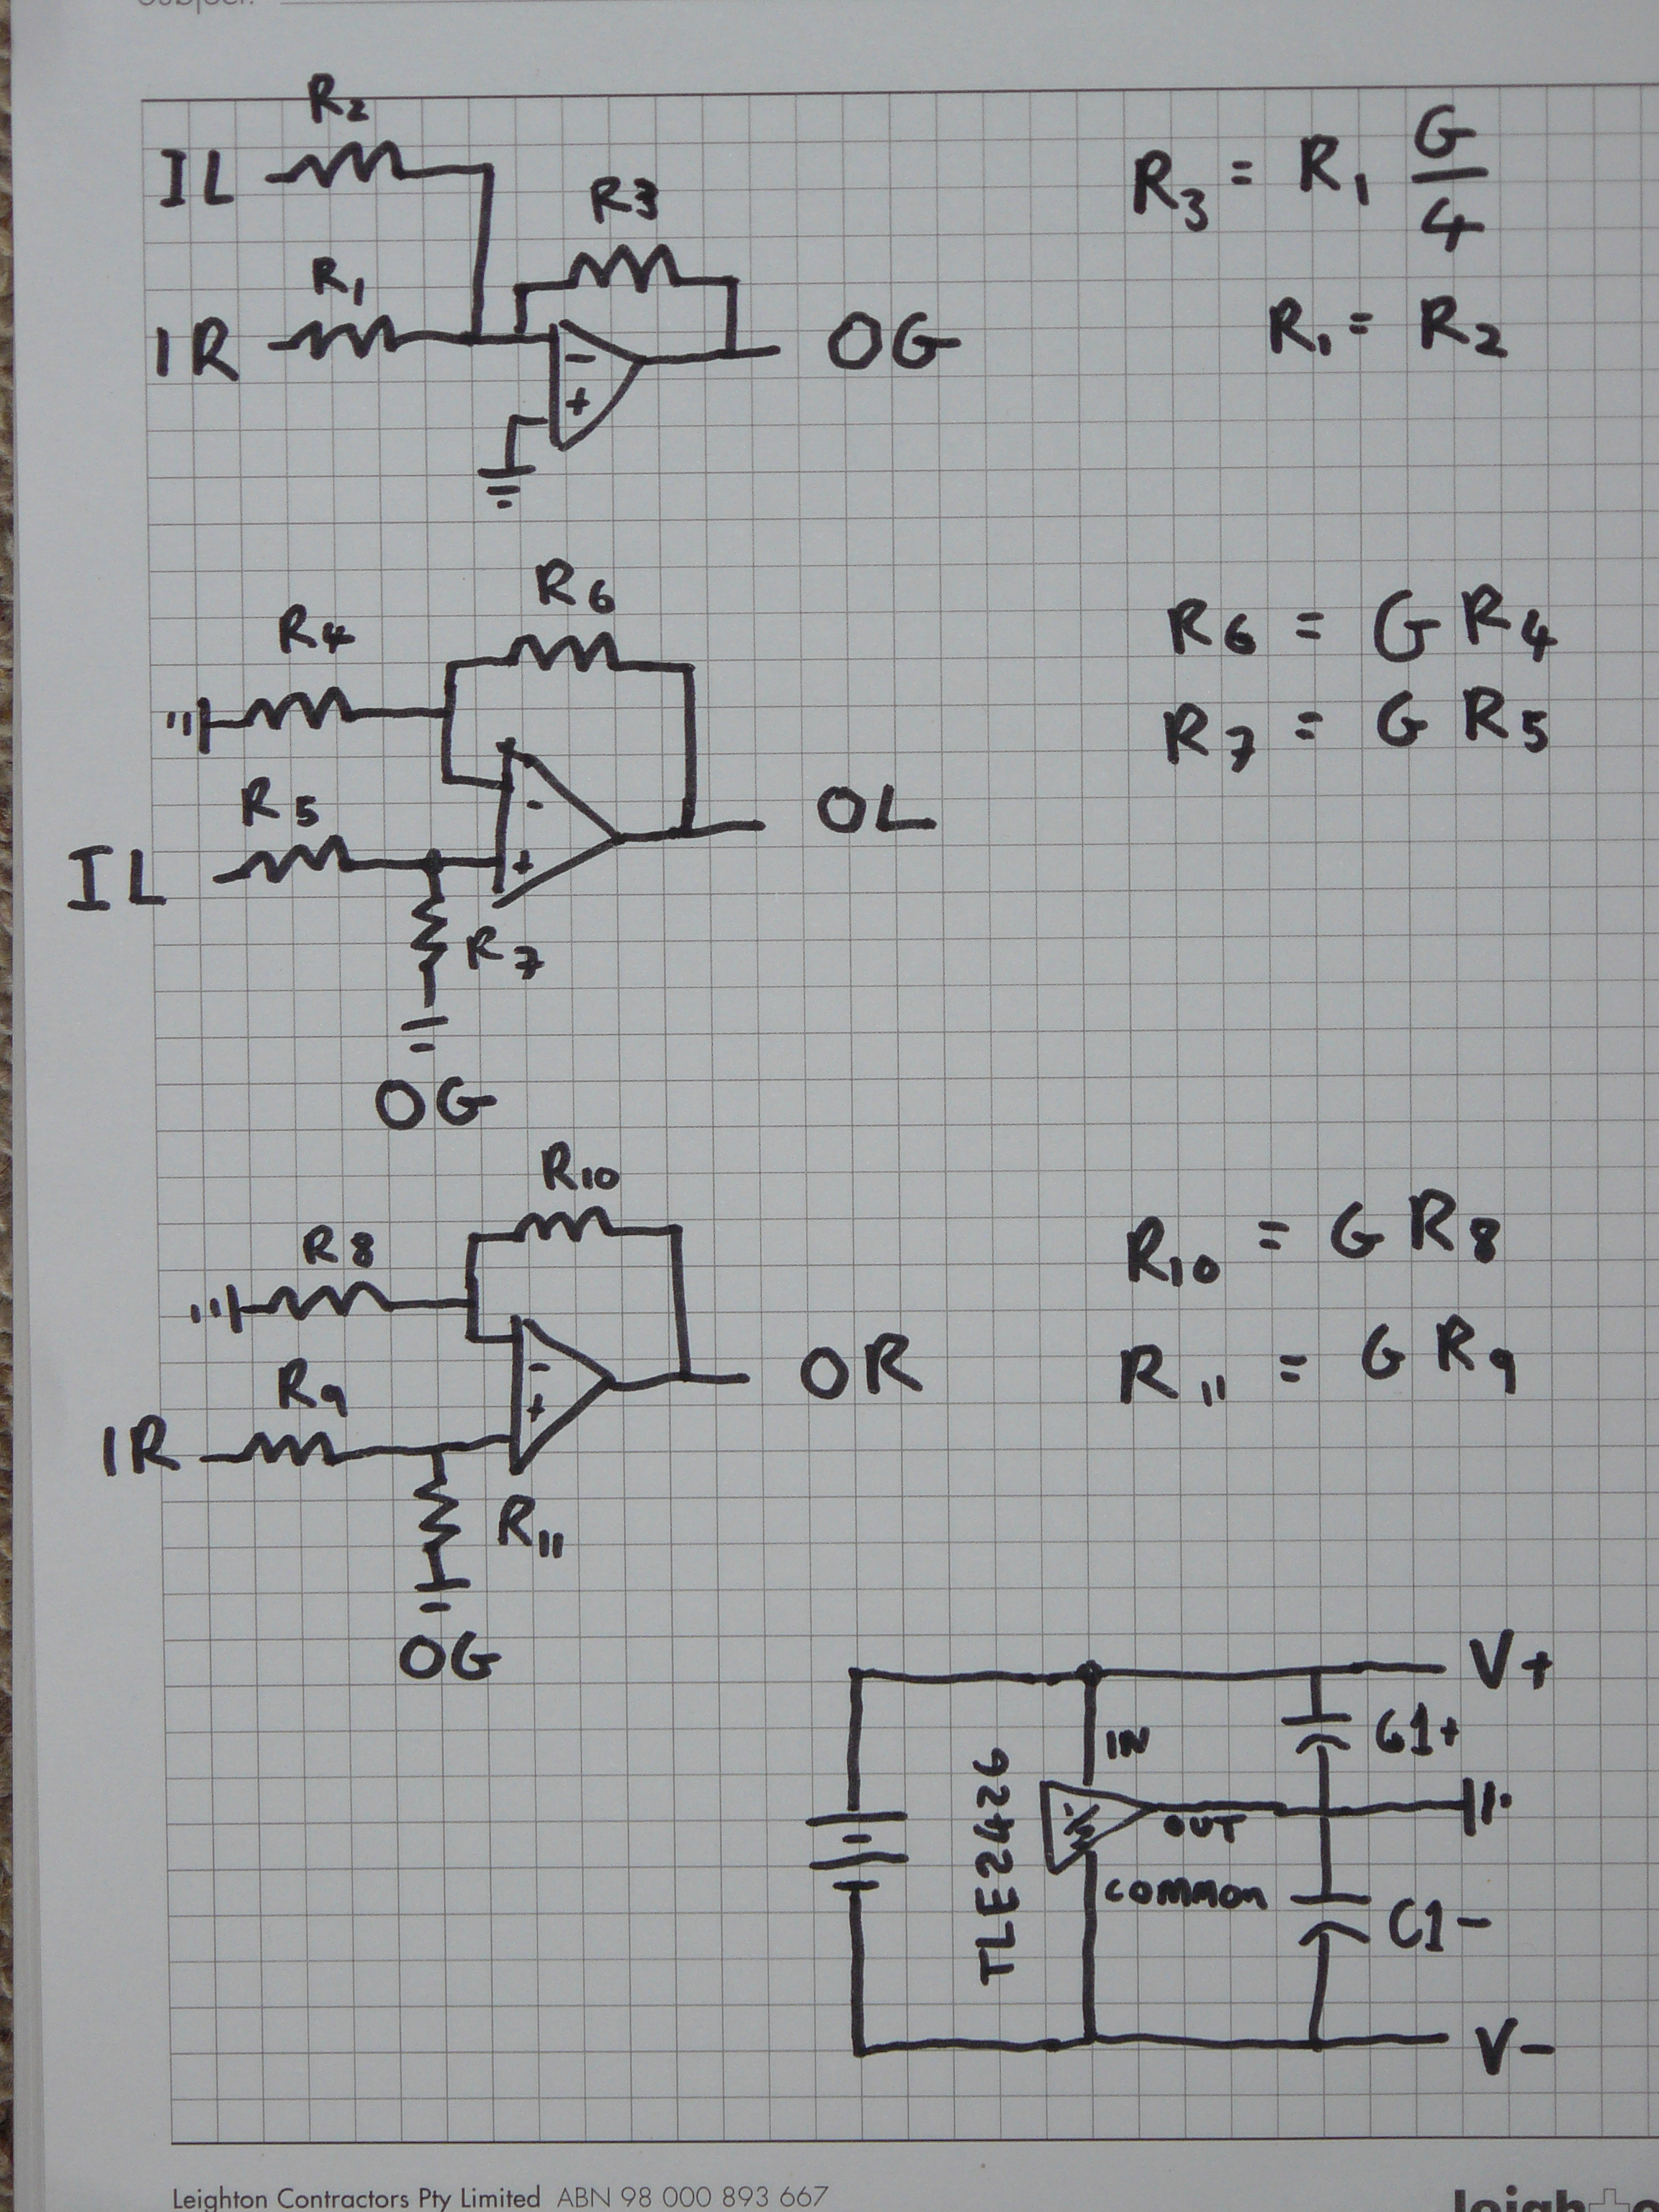 R2
IL
R3
R1
IR
OG
-
+
R3 = R1 G/4
R1 = R2
R6
R4
R5
IL
-
+
OL
R7
OG
R6 = G R4
R7 = G R5
R10
R8
R9
IR
-
+
OR
R11
OG
R10 = G R8
R11 = G R9
V+
IN
C1+
TLE2426
OUT
common
C1-
V-
Leighton Contractors Pty Limited ABN 98 000 893 667